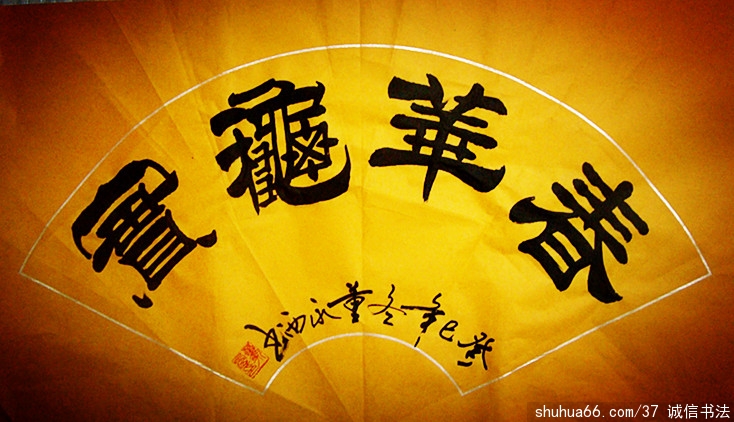 春華龝實
癸巳年冬董永
shuhua66.com/37 诚信书法